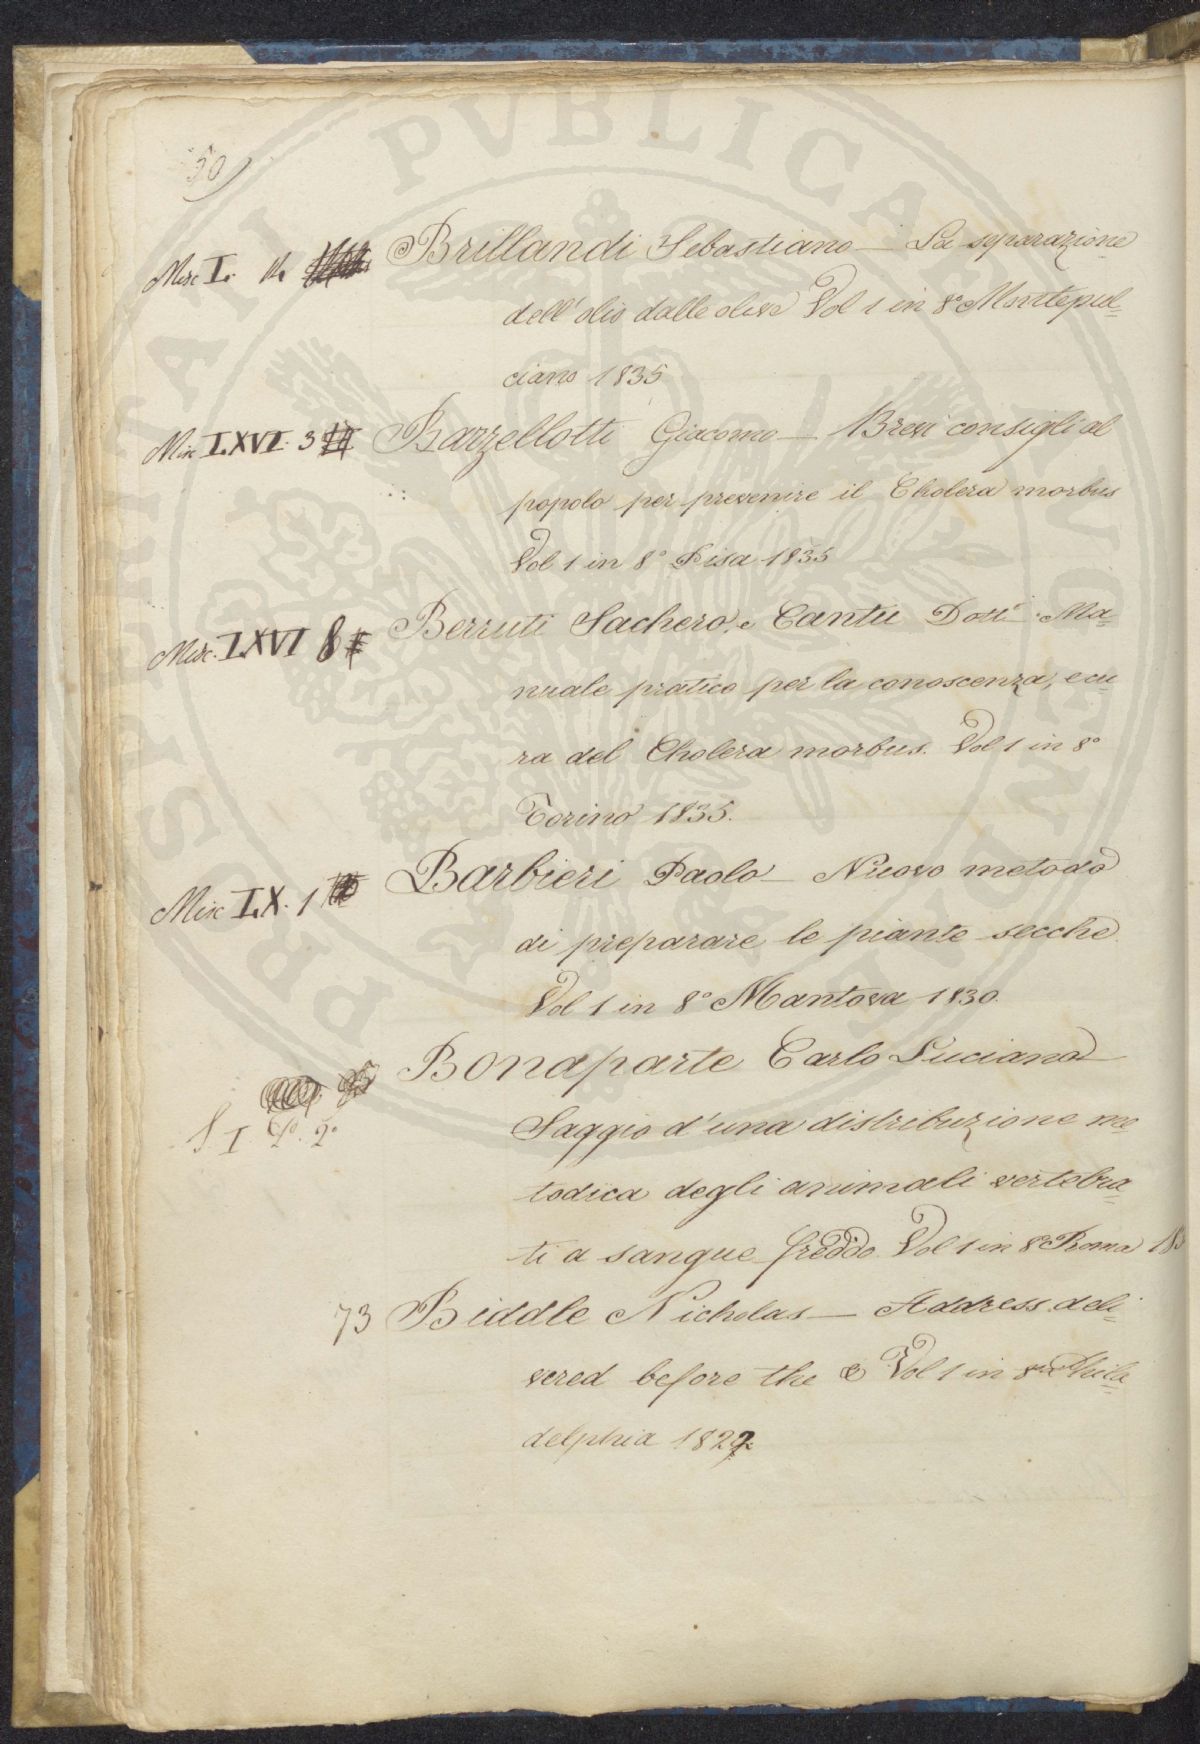 50)
Misc I. 11. Brillandi Sebastiano — La separazione
dell' olio dalle olive Vol 1 in 8° Montepul=
ciano 1835
Misc LXVI. 3 Barzellotti Giacomo — Brevi consigli al
popolo per prevenire il Cholera morbus
Vol 1 in 8° Pisa 1835
Misc. LXVI 8 Berruti Sachero, e Cantù Dott.i Ma=
nuale pratico per la conoscenza, e cu=
ra del Cholera morbus. Vol 1 in 8°
Torino 1835.
Misc LX. 1 Barbieri Paolo — Nuovo metodo
di preparare le piante secche.
Vol 1 in 8° Mantova 1830.
Bonaparte Carlo Luciano —
S I P. 2° Saggio d'una distribuzione me=
todica degli animali vertebra=
ti a sangue freddo. Vol 1 in 8° Roma 183
73 Biddle Nicholas — Address deli=
vered before the & Vol 1 in 8° Phila=
delphia 1822
PROSPERITATI PVBLICAE